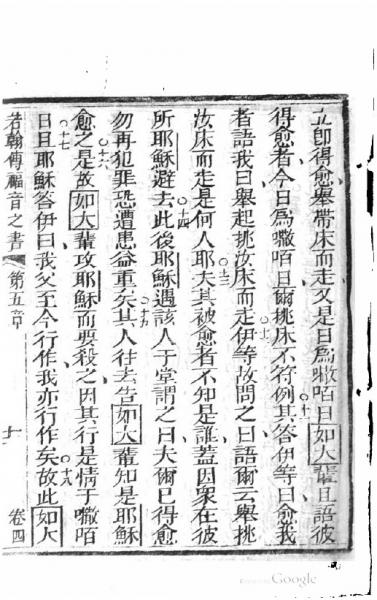 立即得愈舉帶床而走又是日為嘞咟日○十如大輩且語彼
得愈者今日為嘞咟日爾挑床不符例○十一其答伊等曰愈我
者語我曰舉起挑汝床而走○十二伊等故問之曰語爾云舉挑
汝床而走是何人耶○十三夫其被愈者不知是誰蓋因眾在彼
所耶穌避去○十四此後耶穌遇該人于堂謂之曰夫爾已得愈
勿再犯罪恐遭患益重矣○十五其人往去告如大輩知是耶穌
愈之○十六是故如大輩攻耶穌而要殺之因其行是情于嘞咟
日○十七且耶穌答伊曰我父至今行作我亦行作矣○十八故此如大
若翰傳福音之書 第五章 十 卷四
Google